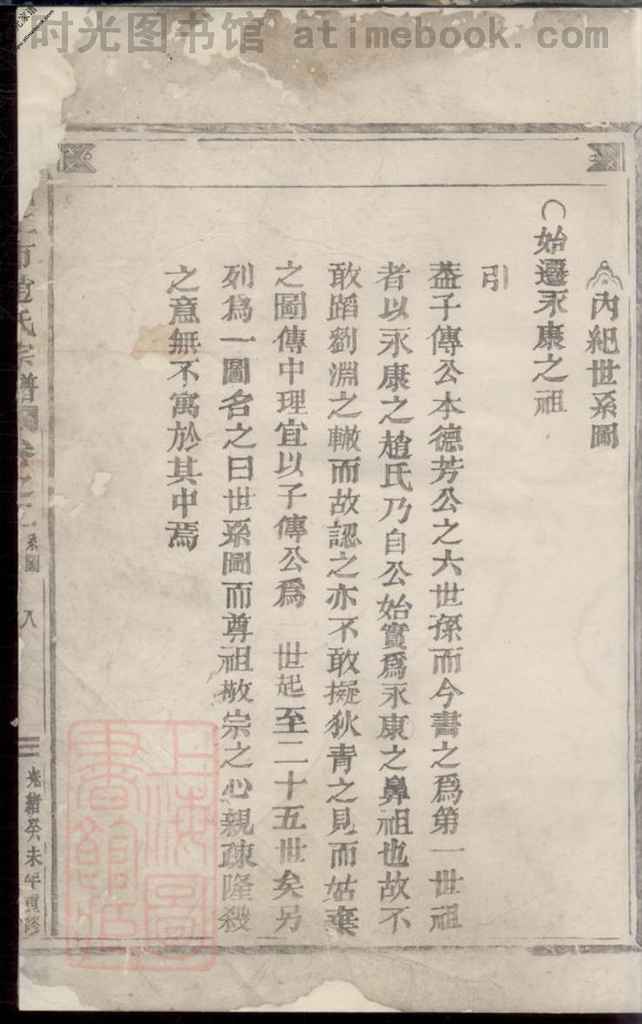 时光图书馆 atimebook.com
内紀世系圖
○始遷永康之祖
引
葢子傳公本德芳公之六世孫而今書之爲第一世祖
者以永康之趙氏乃自公始實爲永康之鼻祖也故不
敢蹈劉淵之轍而故認之亦不敢擬狄青之見而姑棄
之圖傳中理宜以子傳公爲 世起至二十五世矣另
列爲一圖名之曰世系圖而尊祖敬宗之心親疎隆殺
之意無不寓於其中焉
趙氏宗譜 卷之 系圖
八
光緒癸未年重修
上海圖書館藏